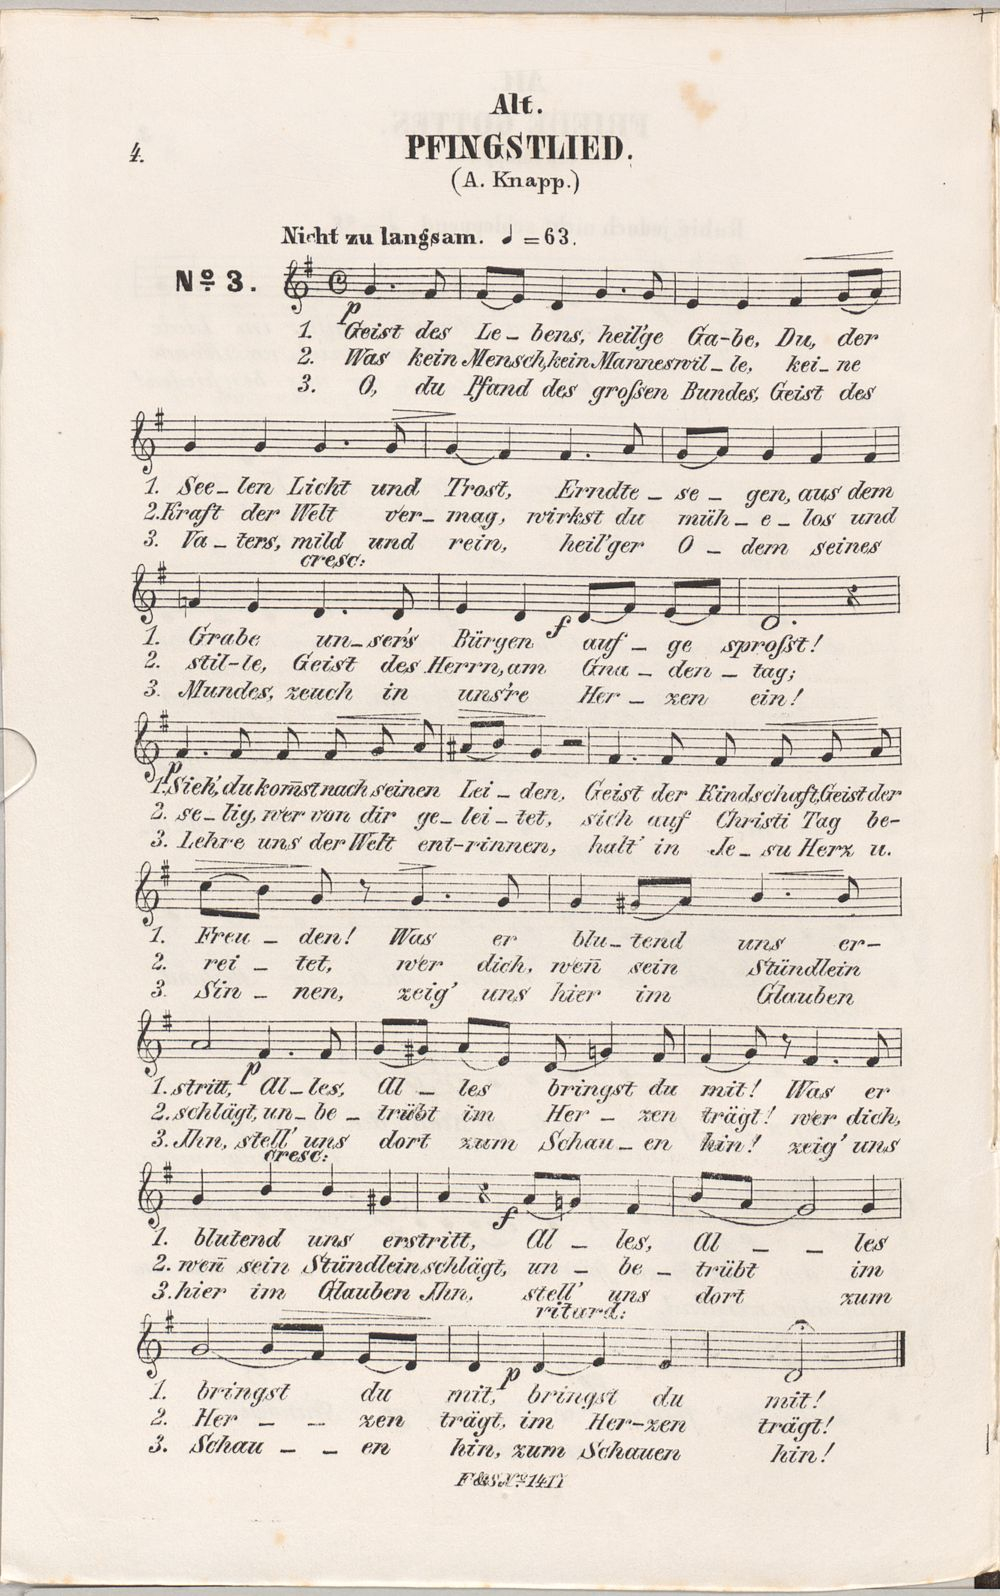 Alt.
4.
PFINGSTLIED.
(A. Knapp.)
Nicht zu langsam. ♩ = 63.
Nº 3.
p
1. Geist des Le - bens, heil'ge Ga-be, Du, der
2. Was kein Mensch, kein Manneswil - le, kei - ne
3. O, du Pfand des großen Bundes, Geist des
1. See - len Licht und Trost, Erndte - se - gen, aus dem
2. Kraft der Welt ver - mag, wirkst du müh - e - los und
3. Va - ters, mild und rein, heil'ger O - dem seines
cresc:
f
1. Grabe un - sers Bürgen auf - ge sproßt!
2. stil - le, Geist des Herrn, am Gna - den - tag;
3. Mundes, zeuch in uns're Her - zen ein!
p
1. Sieh', du kom̄st nach seinen Lei - den, Geist der Kindschaft, Geist der
2. se - lig, wer von dir ge - lei - tet, sich auf Christi Tag be-
3. Lehre uns der Welt ent-rinnen, halt' in Je - su Herz u.
1. Freu - den! Was er blu - tend uns er -
2. rei - tet, wer dich, wen̄ sein Stündlein
3. Sin - nen, zeig' uns hier im Glauben
p
1. stritt, Al - les, Al - les bringst du mit! Was er
2. schlägt, un - be - trübt im Her - zen trägt! wer dich,
3. Ihn, stell' uns dort zum Schau - en hin! zeig' uns
cresc:
f
1. blutend uns erstritt, Al - les, Al - - les
2. wen̄ sein Stündlein schlägt, un - be - trübt im
3. hier im Glauben Ihn, stell' uns dort zum
ritard:
p
1. bringst du mit, bringst du mit!
2. Her - - zen trägt, im Her-zen trägt!
3. Schau - - en hin, zum Schauen hin!
F & S Nº 1411